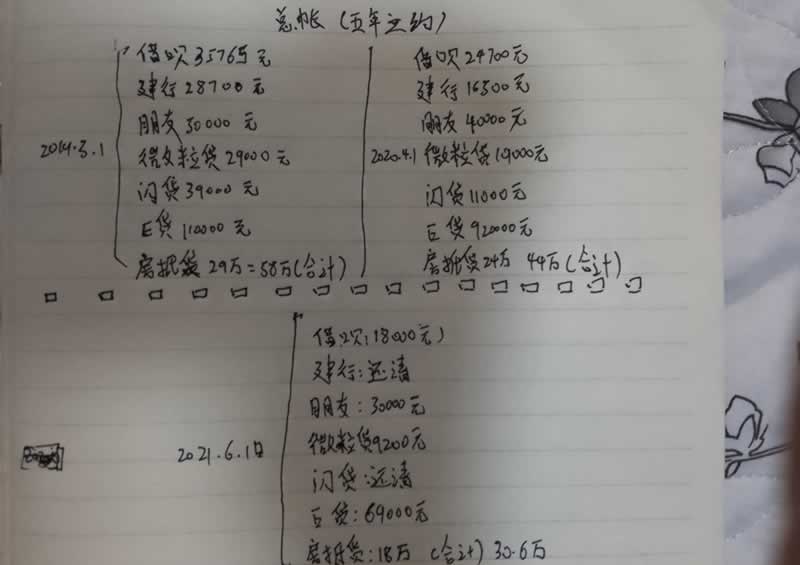 总帐（五年之约）
借呗35765元
建行28700元
朋友50000元
2019.3.1
微粒贷29000元
闪贷39000元
E贷110000元
房抵贷29万=58万(合计)
借呗24700元
建行16500元
朋友40000元
2020.4.1 微粒贷19000元
闪贷11000元
E贷92000元
房抵贷24万 44万(合计)
借呗:18000元)
建行:还清
朋友:30000元
微粒贷9200元
2021.6.1日
闪贷:还清
E贷:69000元
房抵贷:18万 (合计) 30.6万